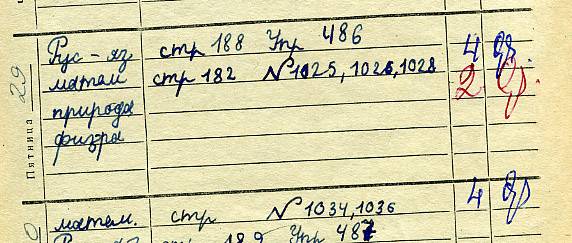 Пятница 29
Рус-яз стр 188 Упр 486 4
матем стр 182 №1025, 1026, 1028 2
природа
физра
матем. стр №1034, 1036 4
189 Упр 487